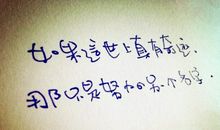 如果這世上真有奇迹,
那只是努力的另一个名字.